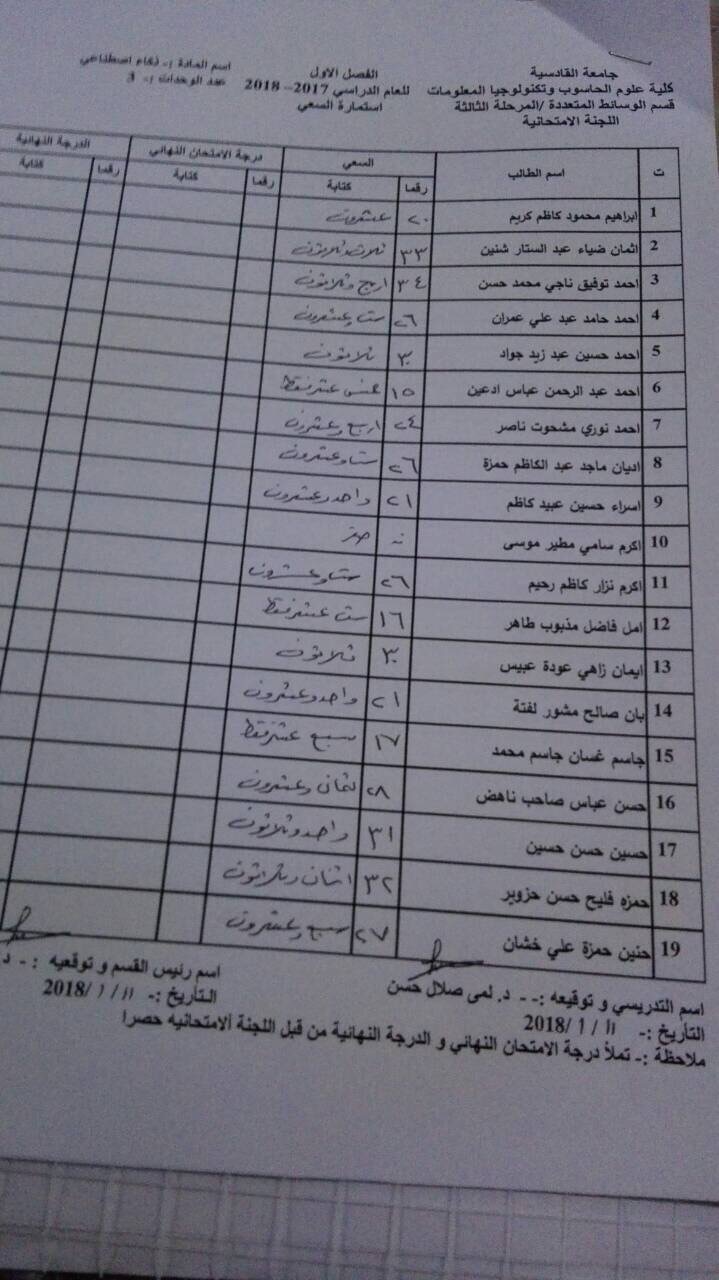 جامعة القادسية
كلية علوم الحاسوب وتكنولوجيا المعلومات
قسم الوسائط المتعددة /المرحلة الثالثة
اللجنة الامتحانية
الفصل الاول
للعام الدراسي 2017- 2018
استمارة السعي
اسم المادة :- ذكاء اصطناعي
عدد الوحدات :- 3
ت اسم الطالب السعي درجة الامتحان النهائي الدرجة النهائية
رقما كتابة رقما كتابة رقما كتابة
1 ابراهيم محمود كاظم كريم ٢٠ عشرون
2 اثمان ضياء عبد الستار شنين ٣٣ ثلاث وثلاثون
3 احمد توفيق ناجي محمد حسن ٣٤ اربع وثلاثون
4 احمد حامد عبد علي عمران ٢٦ ست وعشرون
5 احمد حسين عبد زيد جواد ٣٠ ثلاثون
6 احمد عبد الرحمن عباس ادعين ١٥ خمس عشر فقط
7 احمد نوري مشحوت ناصر ٢٤ اربع وعشرون
8 اديان ماجد عبد الكاظم حمزة ٢٦ ست وعشرون
9 اسراء حسين عبيد كاظم ٢١ واحد وعشرون
10 اكرم سامي مطير موسى صفر
11 اكرم نزار كاظم رحيم ٢٦ ست وعشرون
12 امل فاضل مذبوب طاهر ١٦ ست عشر فقط
13 ايمان زاهي عودة عبيس ٣٠ ثلاثون
14 بان صالح مشور لفتة ٢١ واحد وعشرون
15 جاسم غسان جاسم محمد ١٧ سبع عشر فقط
16 حسن عباس صاحب ناهض ٢٨ ثمان وعشرون
17 حسين حسن حسين ٣١ واحد وثلاثون
18 حمزه فليح حسن حزوير ٣٢ اثنان وثلاثون
19 حنين حمزة علي خشان ٢٧ سبع وعشرون
اسم التدريسي و توقيعه :- - د. لمى صلال حسن
التأريخ :- ١١ / ١ /2018
اسم رئيس القسم و توقعيه :- د.
التأريخ :- ١١ / ١ /2018
ملاحظة :- تملأ درجة الامتحان النهائي و الدرجة النهائية من قبل اللجنة ألامتحانيه حصرا